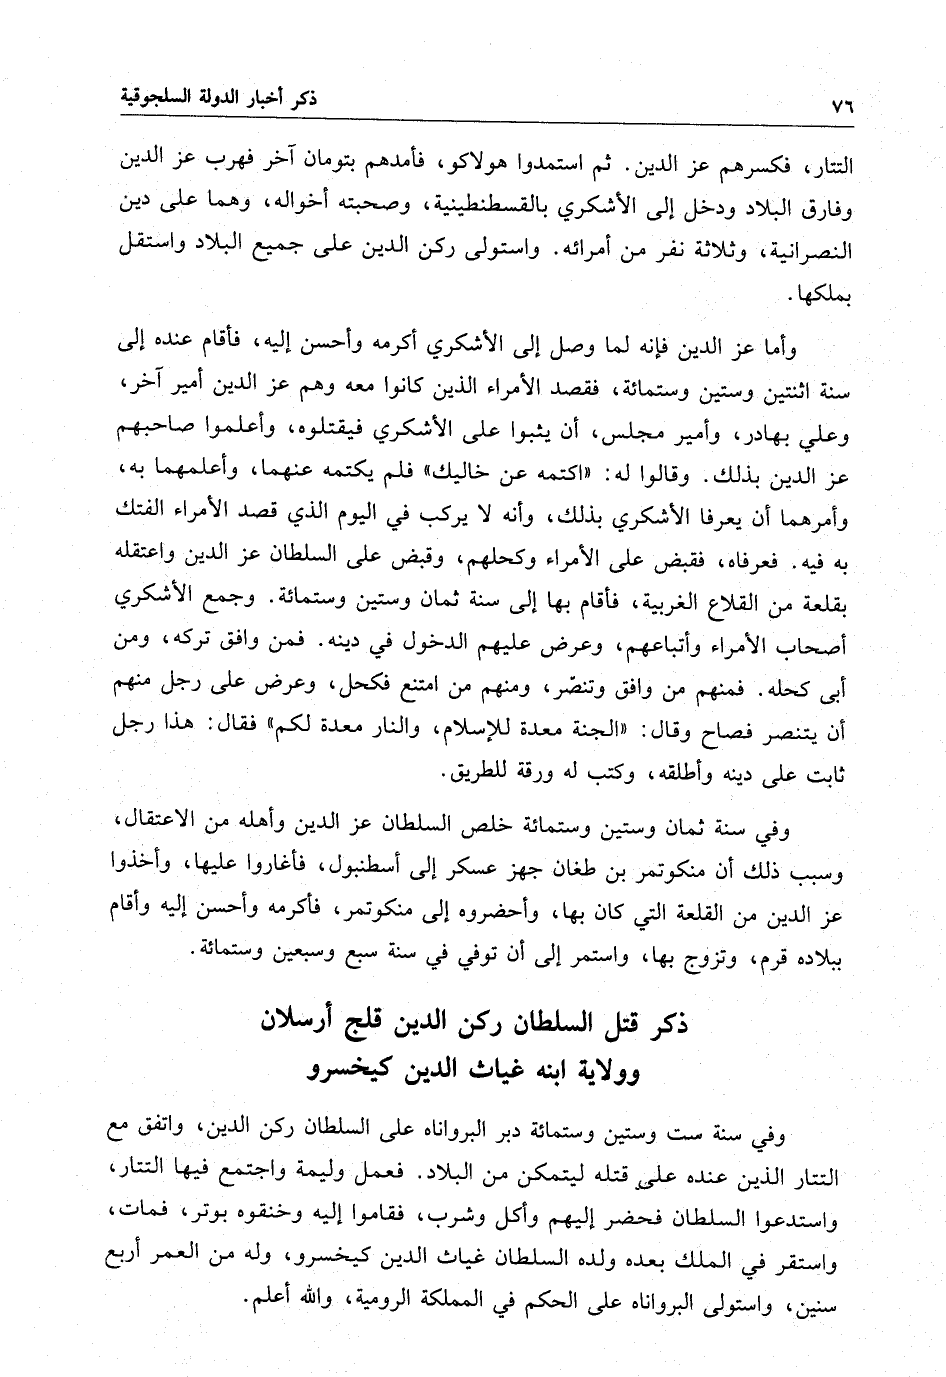 ٧٦
ذكر أخبار الدولة السلجوقية
التتار، فكسرهم عز الدين. ثم استمدوا هولاكو، فأمدهم بتومان آخر فهرب عز الدين
وفارق البلاد ودخل إلى الأشكري بالقسطنطينية، وصحبته أخواله، وهما على دين
النصرانية، وثلاثة نفر من أمرائه. واستولى ركن الدين على جميع البلاد واستقل
بملكها.
وأما عز الدين فإنه لما وصل إلى الأشكري أكرمه وأحسن إليه، فأقام عنده إلى
سنة اثنتين وستين وستمائة، فقصد الأمراء الذين كانوا معه وهم عز الدين أمير آخر،
وعلي بهادر، وأمير مجلس، أن يثبوا على الأشكري فيقتلوه، وأعلموا صاحبهم
عز الدين بذلك. وقالوا له: «اكتمه عن خاليك» فلم يكتمه عنهما، وأعلمهما به،
وأمرهما أن يعرفا الأشكري بذلك، وأنه لا يركب في اليوم الذي قصد الأمراء الفتك
به فيه. فعرفاه، فقبض على الأمراء وكحلهم، وقبض على السلطان عز الدين واعتقله
بقلعة من القلاع الغربية، فأقام بها إلى سنة ثمان وستين وستمائة. وجمع الأشكري
أصحاب الأمراء وأتباعهم، وعرض عليهم الدخول في دينه. فمن وافق تركه، ومن
أبى كحله. فمنهم من وافق وتنصّر، ومنهم من امتنع فكحل، وعرض على رجل منهم
أن يتنصر فصاح وقال: «الجنة معدة للإسلام، والنار معدة لكم» فقال: هذا رجل
ثابت على دينه وأطلقه، وكتب له ورقة للطريق.
وفي سنة ثمان وستين وستمائة خلص السلطان عز الدين وأهله من الاعتقال،
وسبب ذلك أن منكوتمر بن طغان جهز عسكر إلى أسطنبول، فأغاروا عليها، وأخذوا
عز الدين من القلعة التي كان بها، وأحضروه إلى منكوتمر، فأكرمه وأحسن إليه وأقام
ببلاده قرم، وتزوج بها، واستمر إلى أن توفي في سنة سبع وسبعين وستمائة.
ذكر قتل السلطان ركن الدين قلج أرسلان
وولاية ابنه غياث الدين كيخسرو
وفي سنة ست وستين وستمائة دبر البرواناه على السلطان ركن الدين، واتفق مع
التتار الذين عنده على قتله ليتمكن من البلاد. فعمل وليمة واجتمع فيها التتار،
واستدعوا السلطان فحضر إليهم وأكل وشرب، فقاموا إليه وخنقوه بوتر، فمات،
واستقر في الملك بعده ولده السلطان غياث الدين كيخسرو، وله من العمر أربع
سنين، واستولى البرواناه على الحكم في المملكة الرومية، والله أعلم.